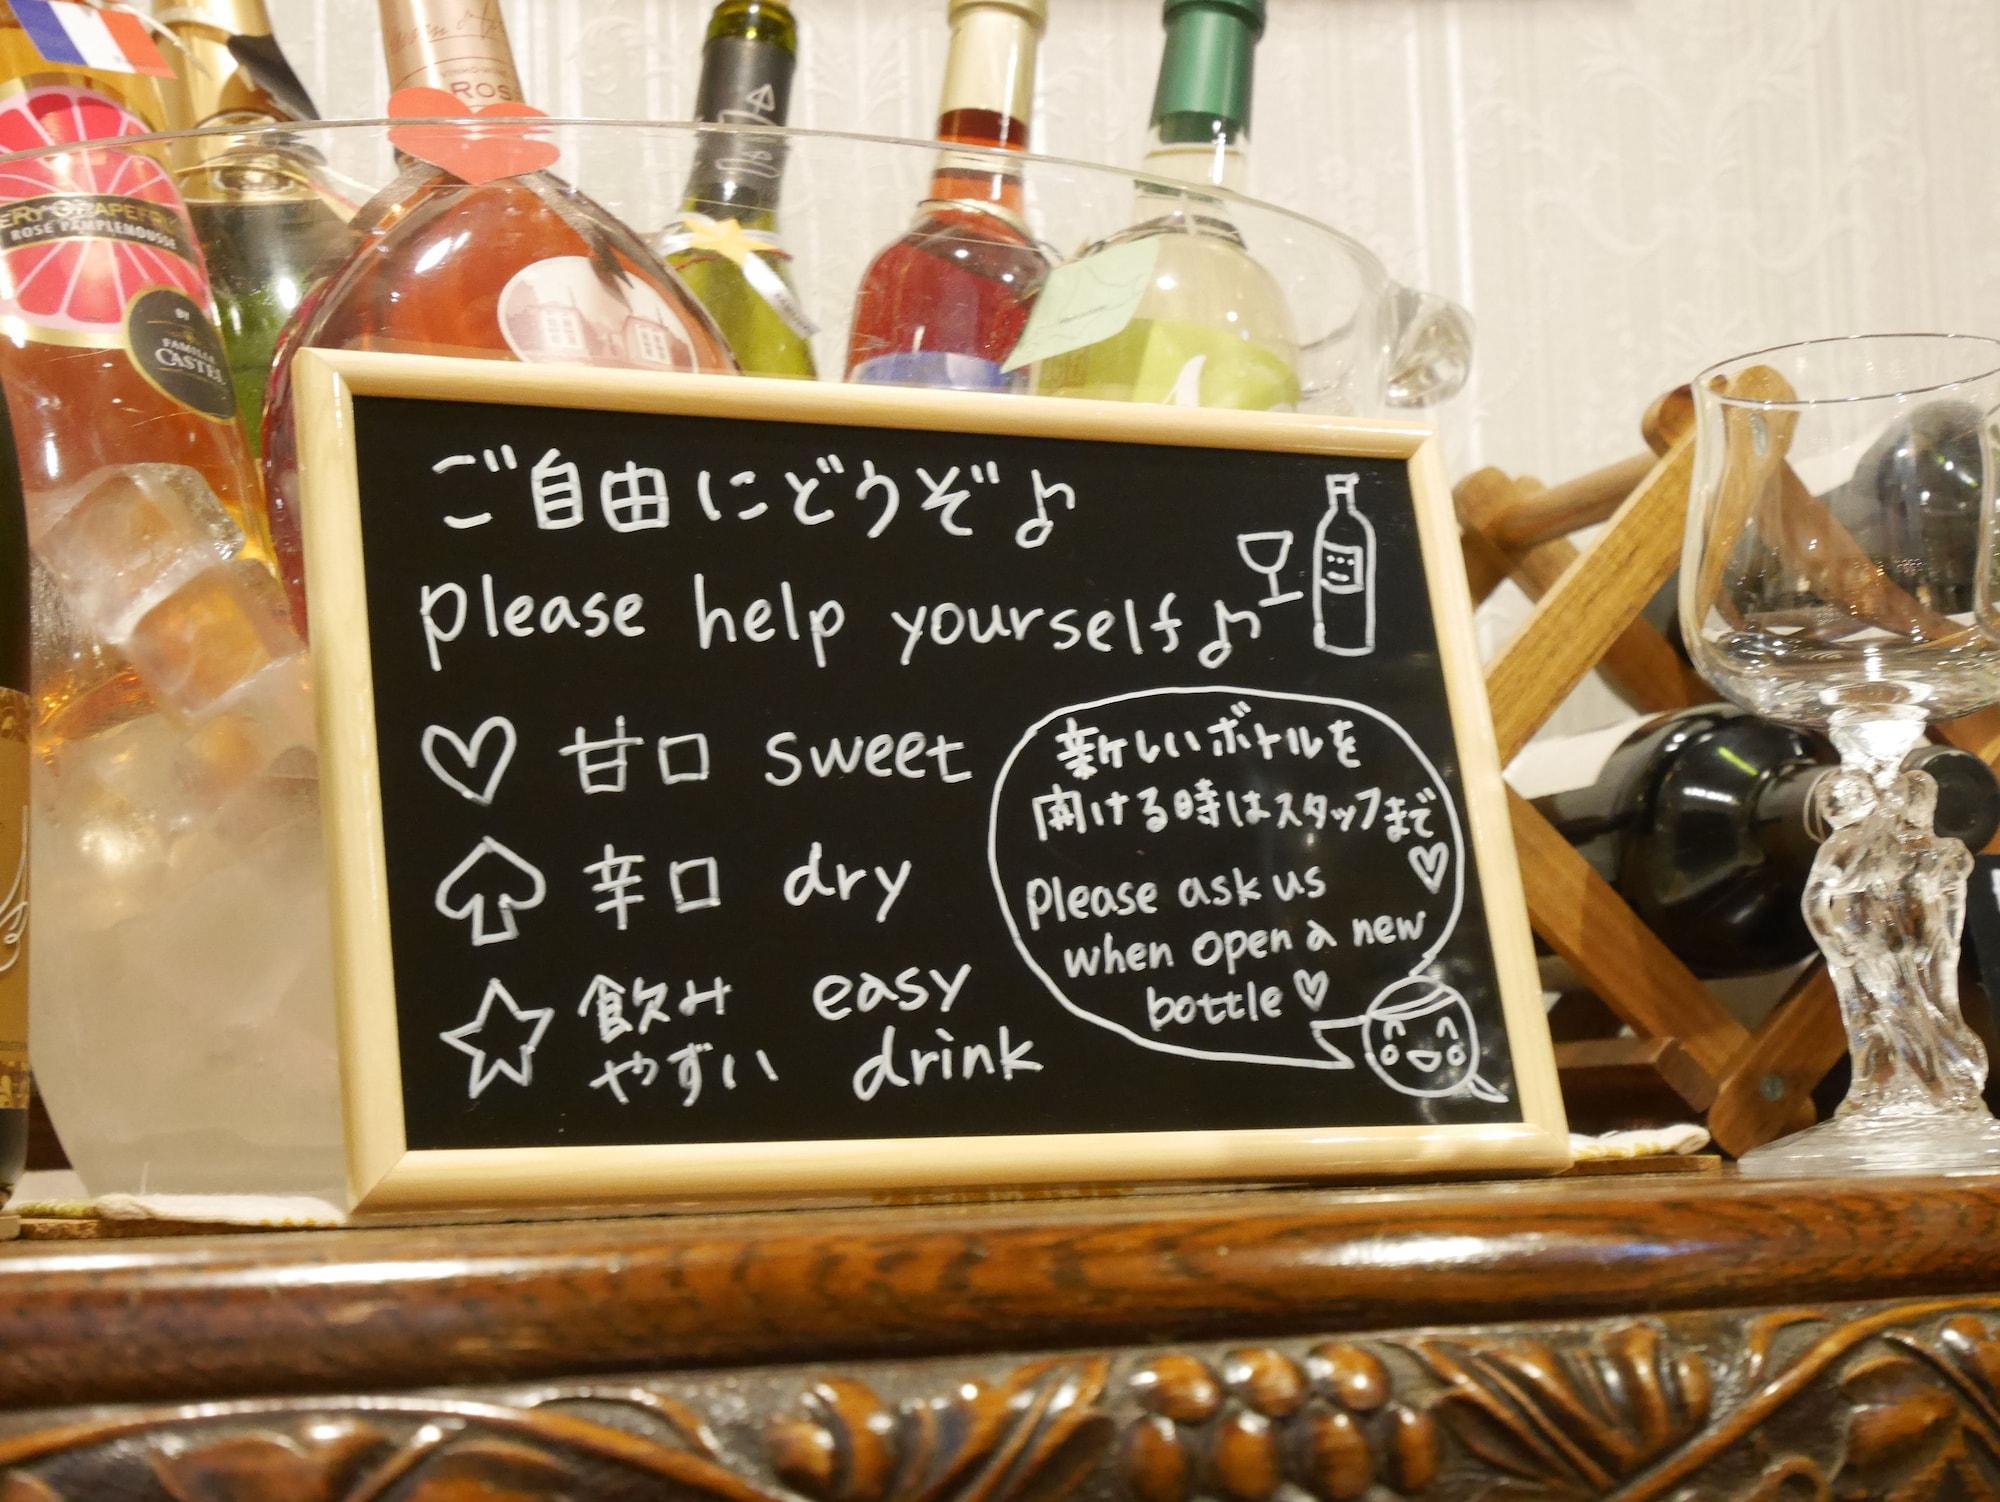 ROSÉ PAMPLEMOUSSE
BY
FAMILLE
CASTEL
ROS
ご自由にどうぞ♪
please help yourself♪
♡ 甘口 sweet
♤ 辛口 dry
☆ 飲み easy
やすい drink
新しいボトルを
開ける時はスタッフまで
♡
please ask us
when open a new
bottle♡